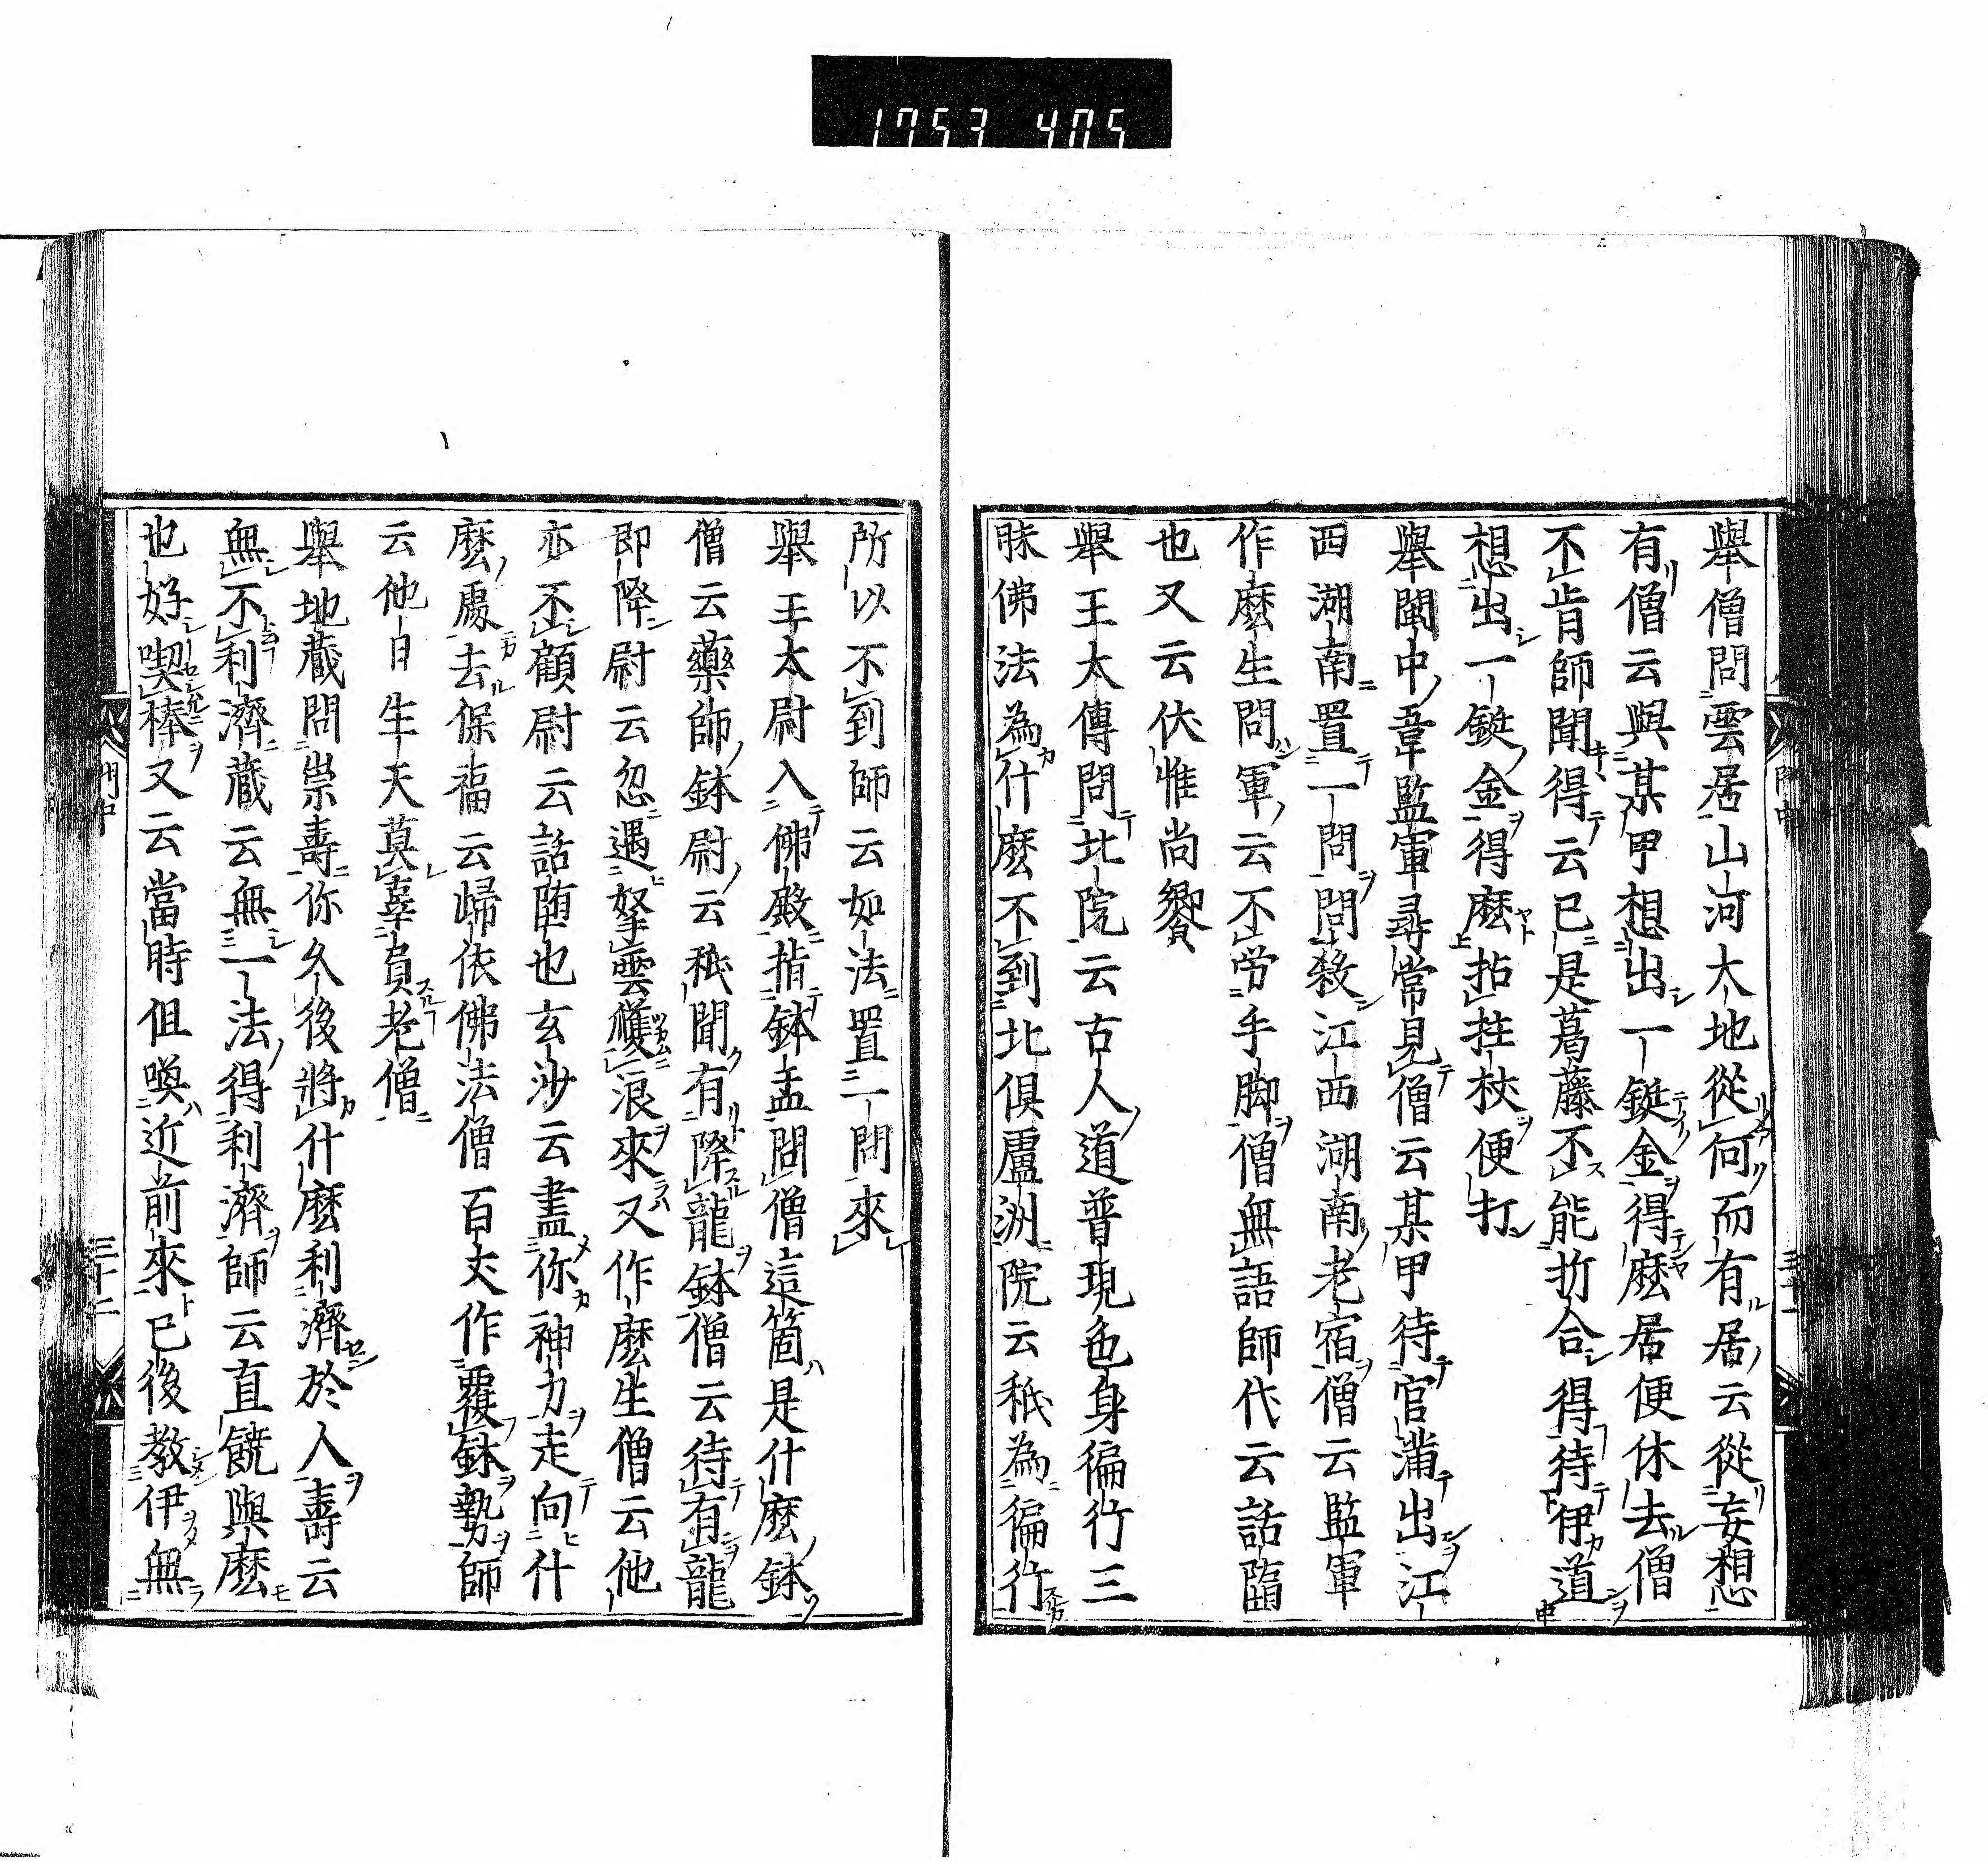 1753 405
舉僧問雲居山河大地從何而有居云從妄想
有僧云與某甲想出一鋌金得麼居便休去僧
不肯師聞得云已是葛藤不能折合得待伊道
想出一鋌金得麼拈拄杖便打
舉閩中韋監軍尋常見僧云某甲待官滿出江
西湖南置一問問殺江西湖南老宿僧云監軍
作麼生問軍云不勞手脚僧無語師代云話墮
也又云伏惟尚饗
舉王太傅問北院云古人道普現色身徧行三
昧佛法為什麼不到北俱盧洲院云秖為徧行
所以不到師云如法置一問來
舉王太尉入佛殿指鉢盂問僧這箇是什麼鉢
僧云藥師鉢尉云秖聞有降龍鉢僧云待有龍
即降尉云忽遇拏雲攫浪來又作麼生僧云他
亦不顧尉云話墮也玄沙云盡你神力走向什
麼處去保福云歸依佛法僧百丈作覆鉢勢師
云他日生天莫辜負老僧
舉地藏問崇壽你久後將什麼利濟於人壽云
無不利濟藏云無一法得利濟師云直饒與麼
也好喫棒又云當時但喚近前來已後教伊無
門中
三十二